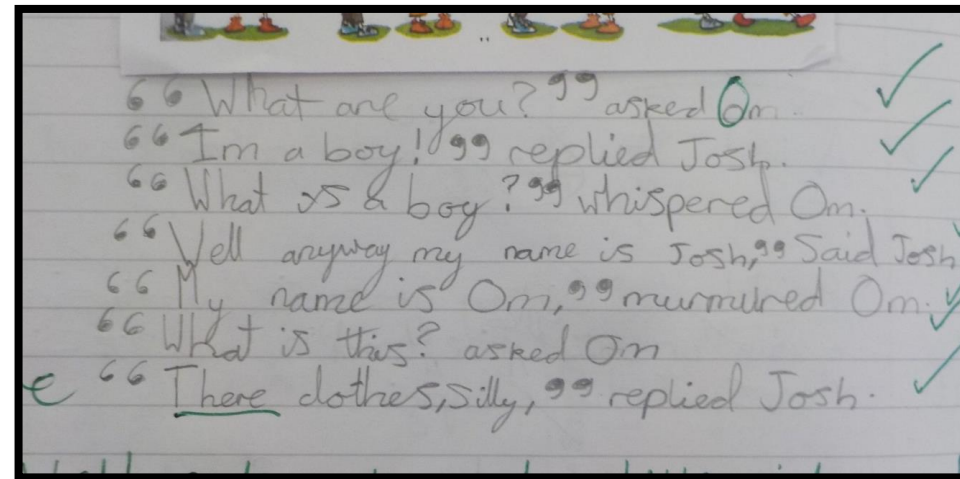 “What are you?” asked Om.
“Im a boy!” replied Josh.
“What is a boy?” whispered Om.
“Well anyway my name is Josh,” Said Josh
“My name is Om,” murmured Om.
“What is this? asked Om
e “There clothes, silly,” replied Josh.